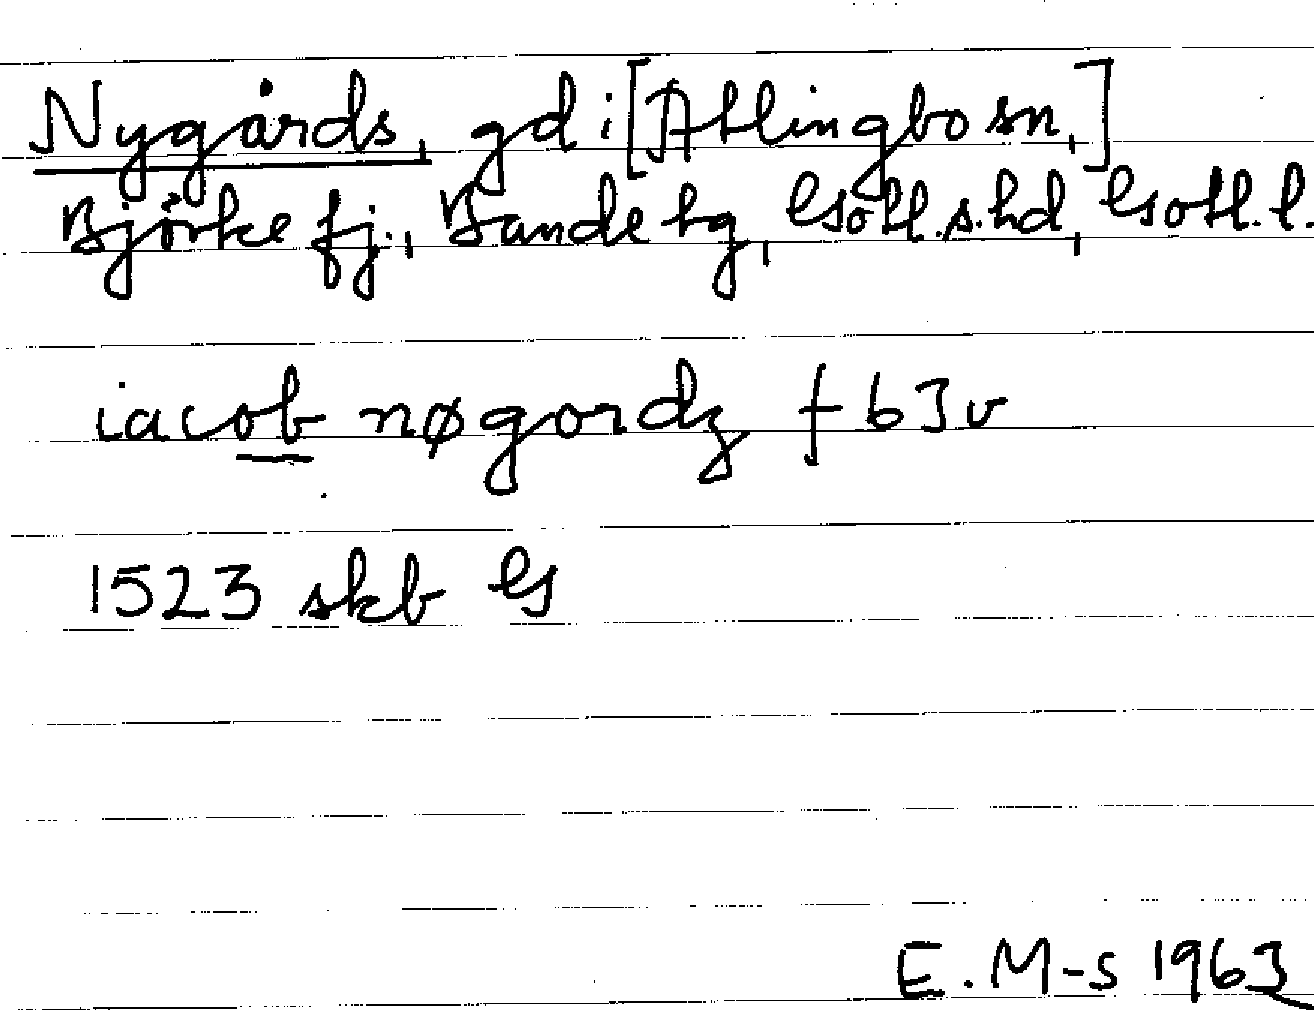 Nygårds, gd i [Atlingbo sn,]
Björke fj., Bande tg, Gotl.s.hd, Gotl.l.
iacob nøgordz f 63v
1523 skb G
E.M-s 1963